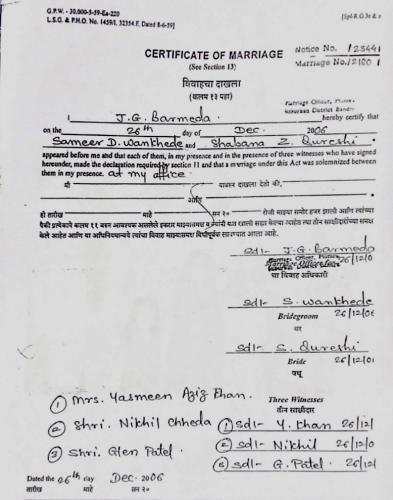 G.P.W. - 30,000-5-59-Ea-220
L.S.G. & P.H.O. No. 1459/I. 32354.F. Dated 8-6-59]
[Spl-R.G.3t & e
CERTIFICATE OF MARRIAGE
Notice No. /23441
(See Section 13)
Marriage No./2100 1
विवाहचा दाखला
(कलम १३ पहा)
Marriage Officer,
Suburban District Bandra
I J.G. Barmeda hereby certify that
on the 26th day of Dec. 2006
Sameer D. Wankhede and Shabana Z. Qureshi
appeared before me and that each of them, in my presence and in the presence of three witnesses who have signed
hereunder, made the declaration required by section 11 and that a marriage under this Act was solemnized between
them in my presence. at my office
मी याव्दारे दाखला देतो की,
आणि
ही तारीख माहे सन २० रोजी माझ्या समोर हजर झाली आणि त्यांच्या
पैकी प्रत्येकाने कलम ११ अन्वये आवश्यक असलेले
केले आहेत आणि या अधिनियमान्वये त्यांचा विवाह माझ्यासमक्ष विधीपूर्वक लावण्यात आला आहे.
sd/- J.G. Barmeda
26/12/0
चा विवाह अधिकारी
sd/- S. Wankhede
Bridegroom 26/12/06
वर
sd/- S. Qureshi
Bride 26/12/0
वधू
① Mrs. Yasmeen Aziz Khan.
Three Witnesses
तीन साक्षीदार
② Shri. Nikhil Chheda ① sd/- Y. Khan 26/12/
② sd/- Nikhil 26/12/0
③ Shri. Glen Patel. ③ sd/- G. Patel. 26/12/
Dated the 26th day Dec. 2006
तारीख माहे सन २०